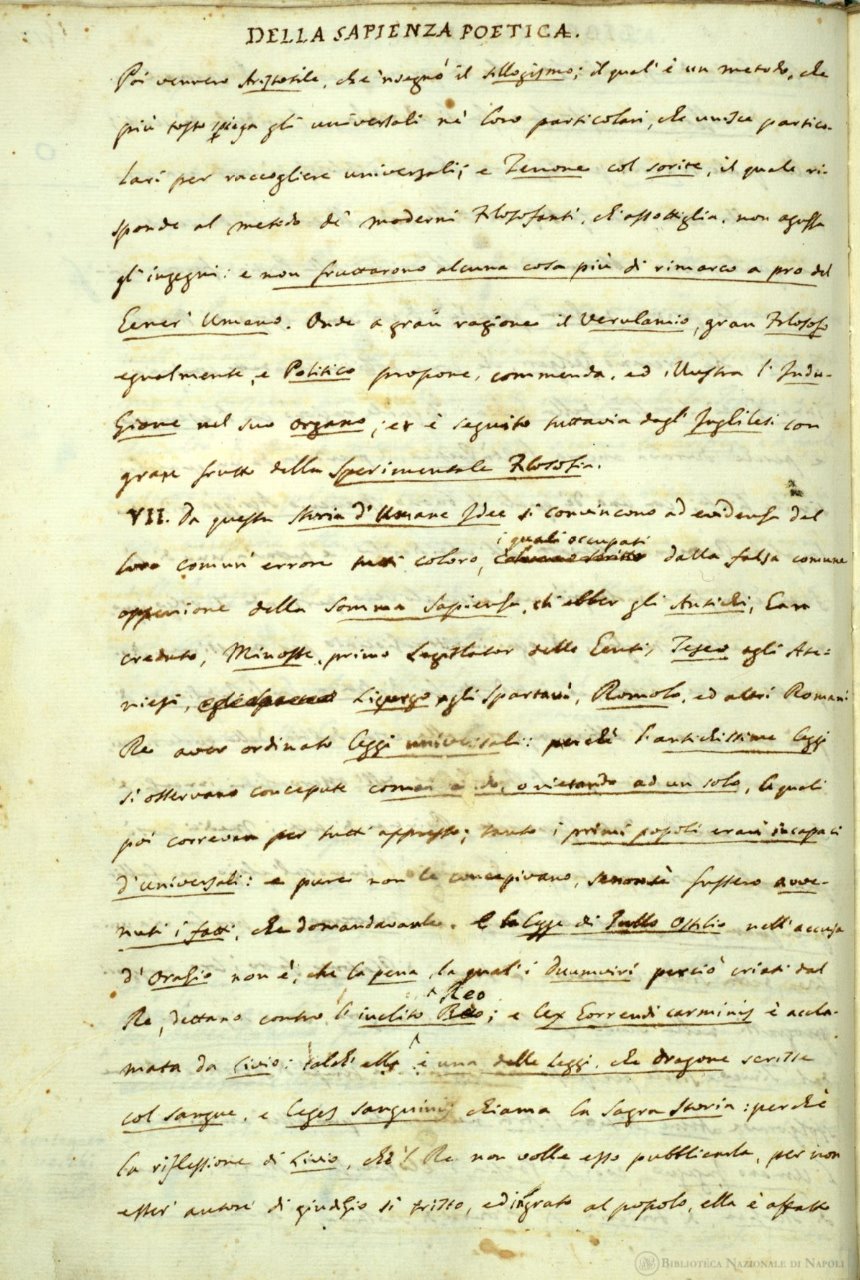 DELLA SAPIENZA POETICA.
Poi vennero Aristotile, che 'nsegnò il sillogismo; il qual' è un metodo, che
più tosto spiega gli universali ne' loro particolari, che unisce partico-
lari per raccogliere universali; e Zenone col sorite, il quale ri-
sponde al metodo de' moderni Filosofanti, ch' assottiglia, non aguzza
gl' ingegni: e non fruttarono alcuna cosa più di rimarco a pro del
Gener' Umano. Onde a gran ragione il Verulamio, gran Filosofo
egualmente, e Politico propone, commenda, ed illustra l' Indu-
zione nel suo Organo; et è seguito tuttavia dagl' Inghilesi con
gran frutto della Sperimentale Filosofia.
VII. Da questa storia d' Umane Idee si convincono ad evidenza del
i quali occupati
loro comun' errore tutti coloro, dalla falsa comune
oppenione della somma sapienza, ch' ebber gli Antichi, han
creduto, Minosse, primo Legislator delle Genti, Teseo agli Ate-
niesi, Ligurgo agli Spartani, Romolo, ed altri Romani
Re aver ordinato leggi universali: perchè l' antichissime leggi
si osservano concepute comandando, o vietando ad un solo, le quali
poi correvan per tutti appresso; tanto i primi popoli eran' incapaci
d' universali: e pure non le concepivano, senonsè fussero avve-
nuti i fatti, che domandavanle. E la legge di Tullo Ostilio nell' accusa
d' Orazio non è, che la pena, la qual' i Duumviri perciò criati dal
Reo
Re, dettano contro l' inclito; e lex horrendi carminis è accla-
mata da Livio: talch' ella è una delle leggi, che Dragone scrisse
col sangue, e leges sanguinis chiama la Sagra Storia: perchè
la riflessione di Livio, che 'l Re non volle esso pubblicarla, per non
esser' autore di giudizio sì tristo, ed ingrato al popolo, ella è affatto
BIBLIOTECA NAZIONALE DI NAPOLI